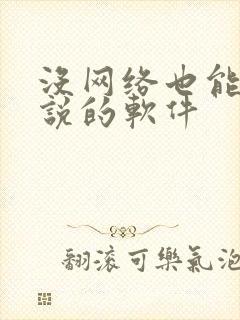 没网络也能
說的軟件
翻滚可樂氣泡